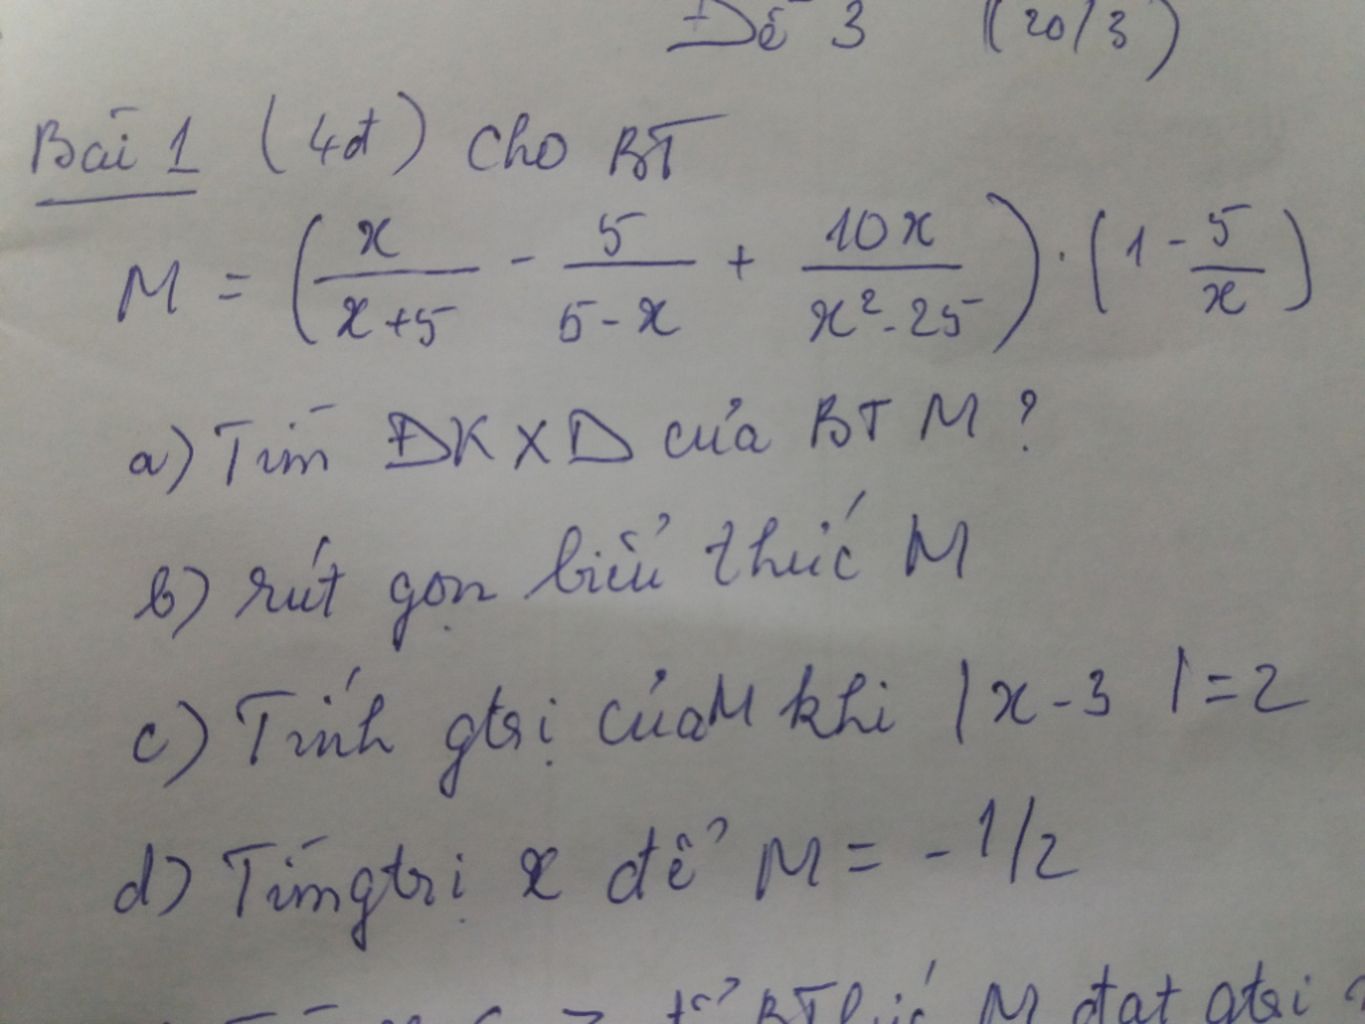 Đề 3 (20/3)
Bài 1 (4đ) Cho BT
M = (x/(x+5) - 5/(5-x) + 10x/(x²-25)) . (1 - 5/x)
a) Tìm ĐKXD của BT M ?
b) rút gọn biểu thức M
c) Tính gtrị của M khi |x-3| = 2
d) Tìm gtrị x để M = -1/2
để BThức M đạt gtrị